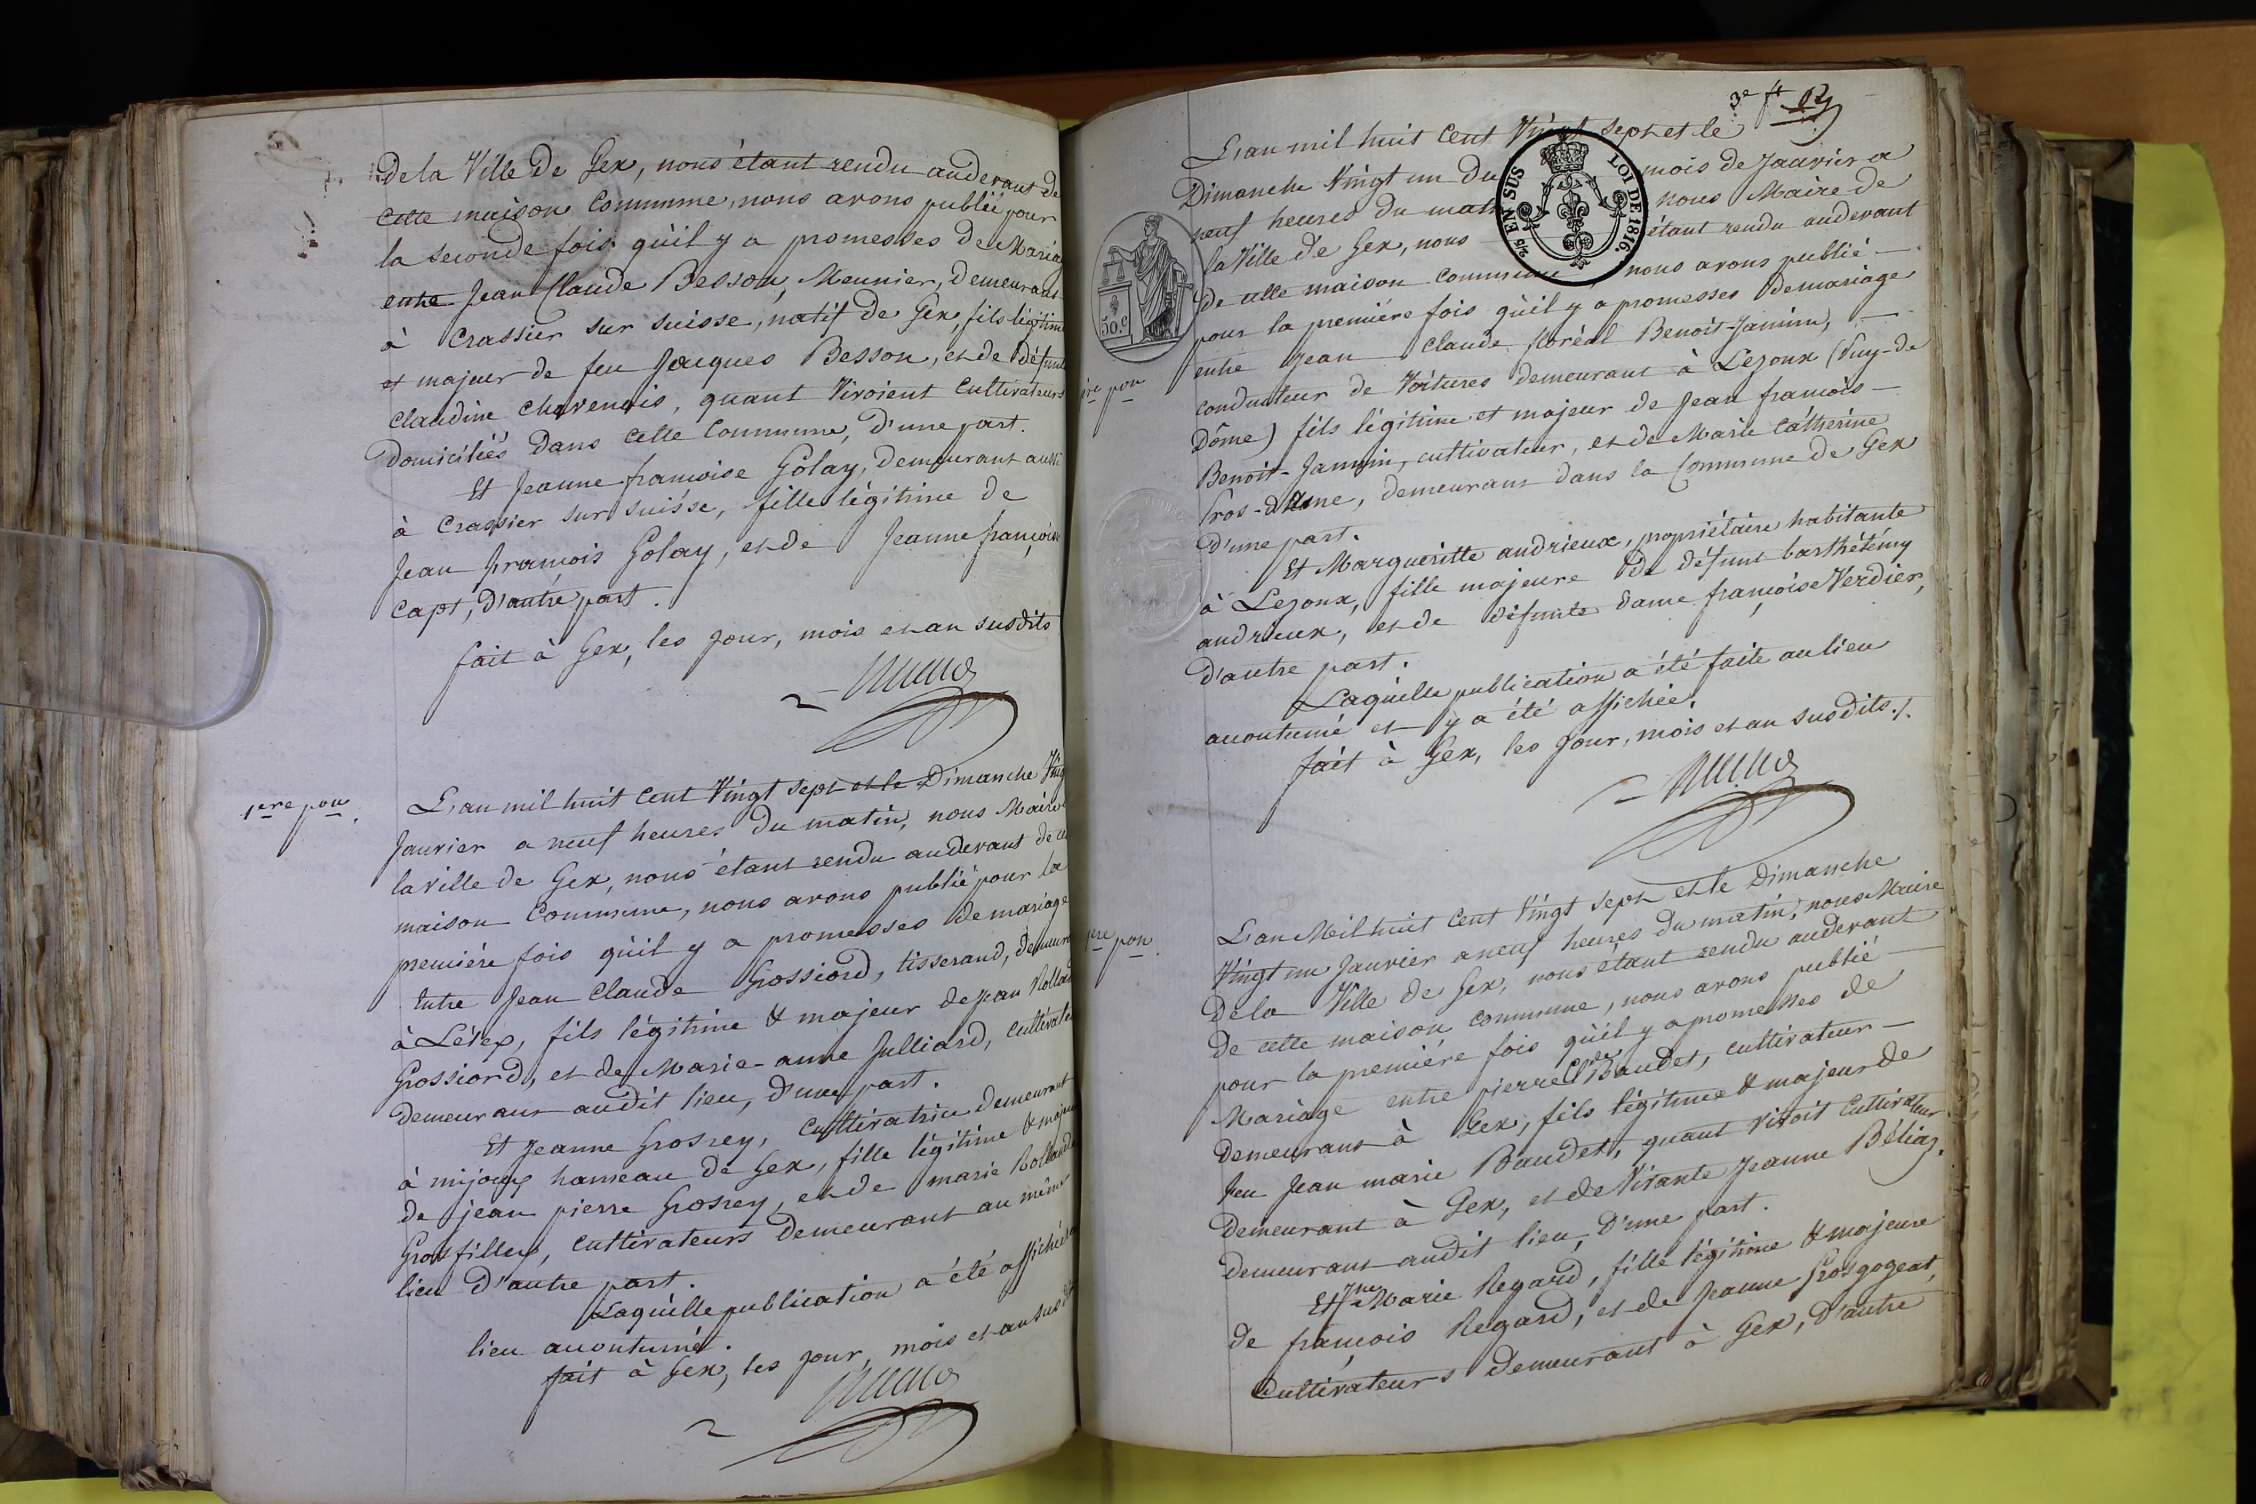 de la Ville de Gex, nous étant rendu audevant de
cette maison commune, nous avons publié pour
la seconde fois qu'il y a promesses de Maria
entre Jean Claude Besson, Meunier, demeurant
à Crassier sur suisse, natif de Gex, fils légitim
et majeur de feu Jacques Besson, et de défunte
Claudine Chavenois, quant vivoient cultivateurs
domiciliés dans cette Commune, d'une part.
Et Jeanne françoise Golay, demeurant aussi
à Crassier sur suisse, fille légitime de
Jean françois Golay, et de Jeanne françoise
Capt, d'autre part.
fait à Gex, les jour, mois et an susdits
1ere pon.
L'an mil huit cent Vingt sept et le Dimanche Ving
Janvier a neuf heures du matin, nous Maire
la ville de Gex, nous étant rendu audevant de ce
maison commune, nous avons publié pour la
première fois qu'il y a promesses de mariage
Entre Jean Claude Grossiord, tisserand, demeura
à Lélex, fils légitime & majeur de Jean Rolland
Grossiord, et de Marie-anne Julliard, cultivate
demeurant audit lieu, d'une part.
Et Jeanne Grosrey, cultivatrice demeurant
à mijoux hameau de Gex, fille légitime & majeu
de jean pierre Grosrey, et de marie Rollande
Grosfilley, cultivateurs demeurant au même
lieu d'autre part.
Laquelle publication a été affichée
lieu accoutumé.
fait à Gex, les jour, mois et an susdit
3e ft
L'an mil huit cent Vingt sept et le
Dimanche Vingt un du mois de Janvier a
neuf heures du mat nous Maire de
la Ville de Gex, nous étant rendu audevant
de cette maison commune nous avons publié
pour la première fois qu'il y a promesses de mariage
entre Jean Claude floréal Benoit-Jannin,
conducteur de Voitures demeurant à Lezoux (Puy-de
Dôme) fils légitime et majeur de Jean françois
Benoit-Jannin, cultivateur, et de Marie Cathérine
Gros-dAme, demeurant dans la Commune de Gex
d'une part.
Et Marguéritte andrieux, propriétaire habitante
à Lezoux, fille majeure de défunt barthélémy
andrieux, et de défunte dame françoise Verdier,
d'autre part.
Laquelle publication a été faite au lieu
accoutumé et y a été affichée.
fait à Gex, les jour, mois et an susdits./.
L'an Mil huit Cent Vingt sept et le Dimanche
Vingt un Janvier a neuf heures du matin, nous Maire
de la Ville de Gex, nous étant rendu audevant
de cette maison commune, nous avons publié
pour la première fois qu'il y a promesses de
Mariage entre pierre Cde Baudet, cultivateur
demeurant à Gex, fils légitime & majeur de
feu Jean marie Baudet, quant vivoit cultivateur
demeurant à Gex, et de Vivante Jeanne Béliaz.
demeurant audit lieu, d'une part.
Et Jne Marie Regard, fille légitime & majeure
de françois Regard, et de Jeanne Grosgogeat,
cultivateurs demeurant à Gex, d'autre
1re pon
1re pon.
5/10 EN SUS
LOI DE 1816.
50.c